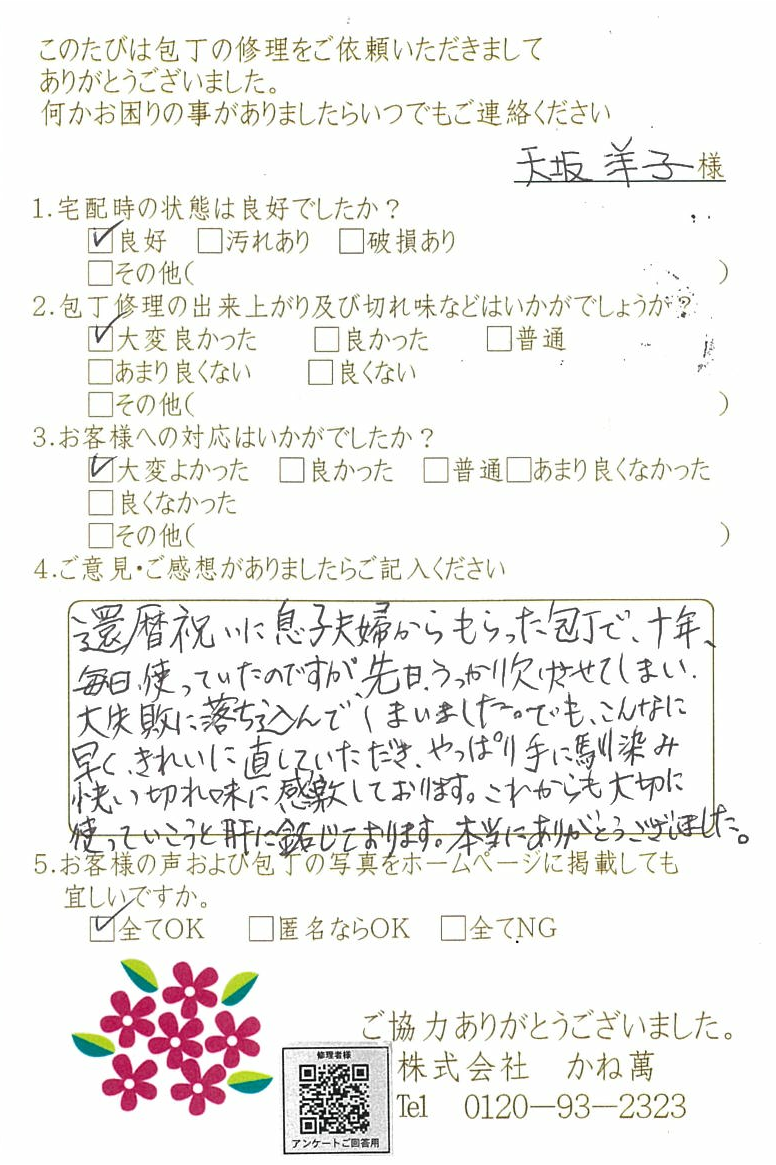 このたびは包丁の修理をご依頼いただきまして
ありがとうございました。
何かお困りの事がありましたらいつでもご連絡ください
天坂 洋子様
1.宅配時の状態は良好でしたか？
☑良好 □汚れあり □破損あり
□その他( )
2.包丁修理の出来上がり及び切れ味などはいかがでしょうか？
☑大変良かった □良かった □普通
□あまり良くない □良くない
□その他( )
3.お客様への対応はいかがでしたか？
☑大変よかった □良かった □普通□あまり良くなかった
□良くなかった
□その他( )
4.ご意見・ご感想がありましたらご記入ください
還暦祝いに息子夫婦からもらった包丁で、十年、
毎日、使っていたのですが、先日、うっかり欠けさせてしまい、
大失敗に落ち込んでしまいました。でも、こんなに
早く、きれいに直していただき、やっぱり手に馴染み
快い切れ味に感激しております。これからも大切に
使っていこうと肝に銘じております。本当にありがとうございました。
5.お客様の声および包丁の写真をホームページに掲載しても
宜しいですか。
☑全てOK □匿名ならOK □全てNG
ご協力ありがとうございました。
修理者様
株式会社 かね萬
アンケートご回答用
Tel 0120－93－2323